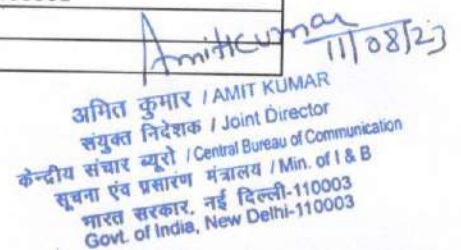 Amitkumar
11/08/23
अमित कुमार / AMIT KUMAR
संयुक्त निदेशक / Joint Director
केन्द्रीय संचार ब्यूरो / Central Bureau of Communication
सूचना एवं प्रसारण मंत्रालय / Min. of I & B
भारत सरकार, नई दिल्ली-110003
Govt. of India, New Delhi-110003